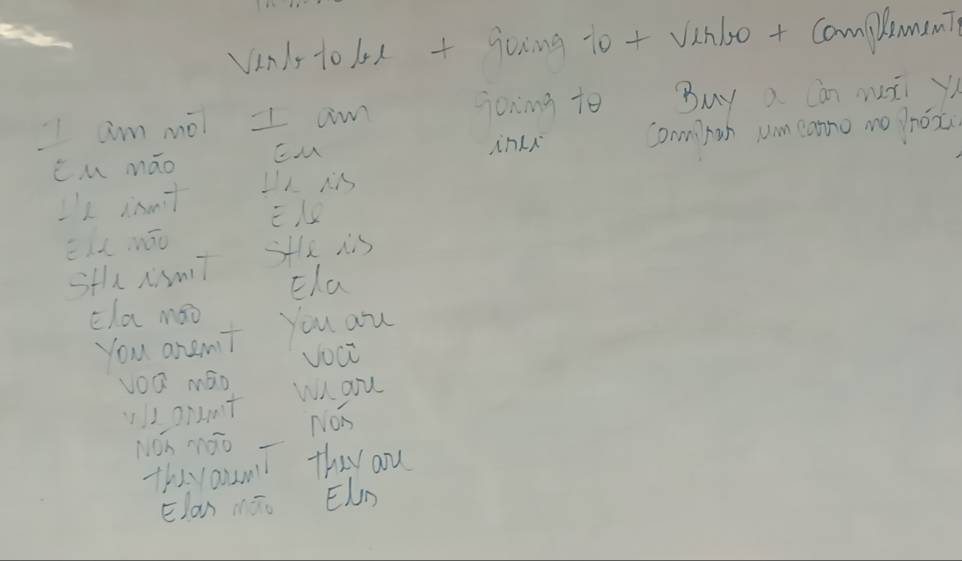 Verb to be + going to + Verbo + Complement
I am not I am going to Buy a car next
Eu não Eu comprar um carro no próxi
He isn't He is
Ele não Ele
SHe isn't SHe is
Ela não Ela
You aren't You are
Você não Você
We aren't We are
Nós não Nós
they aren't they are
Elas não Eles